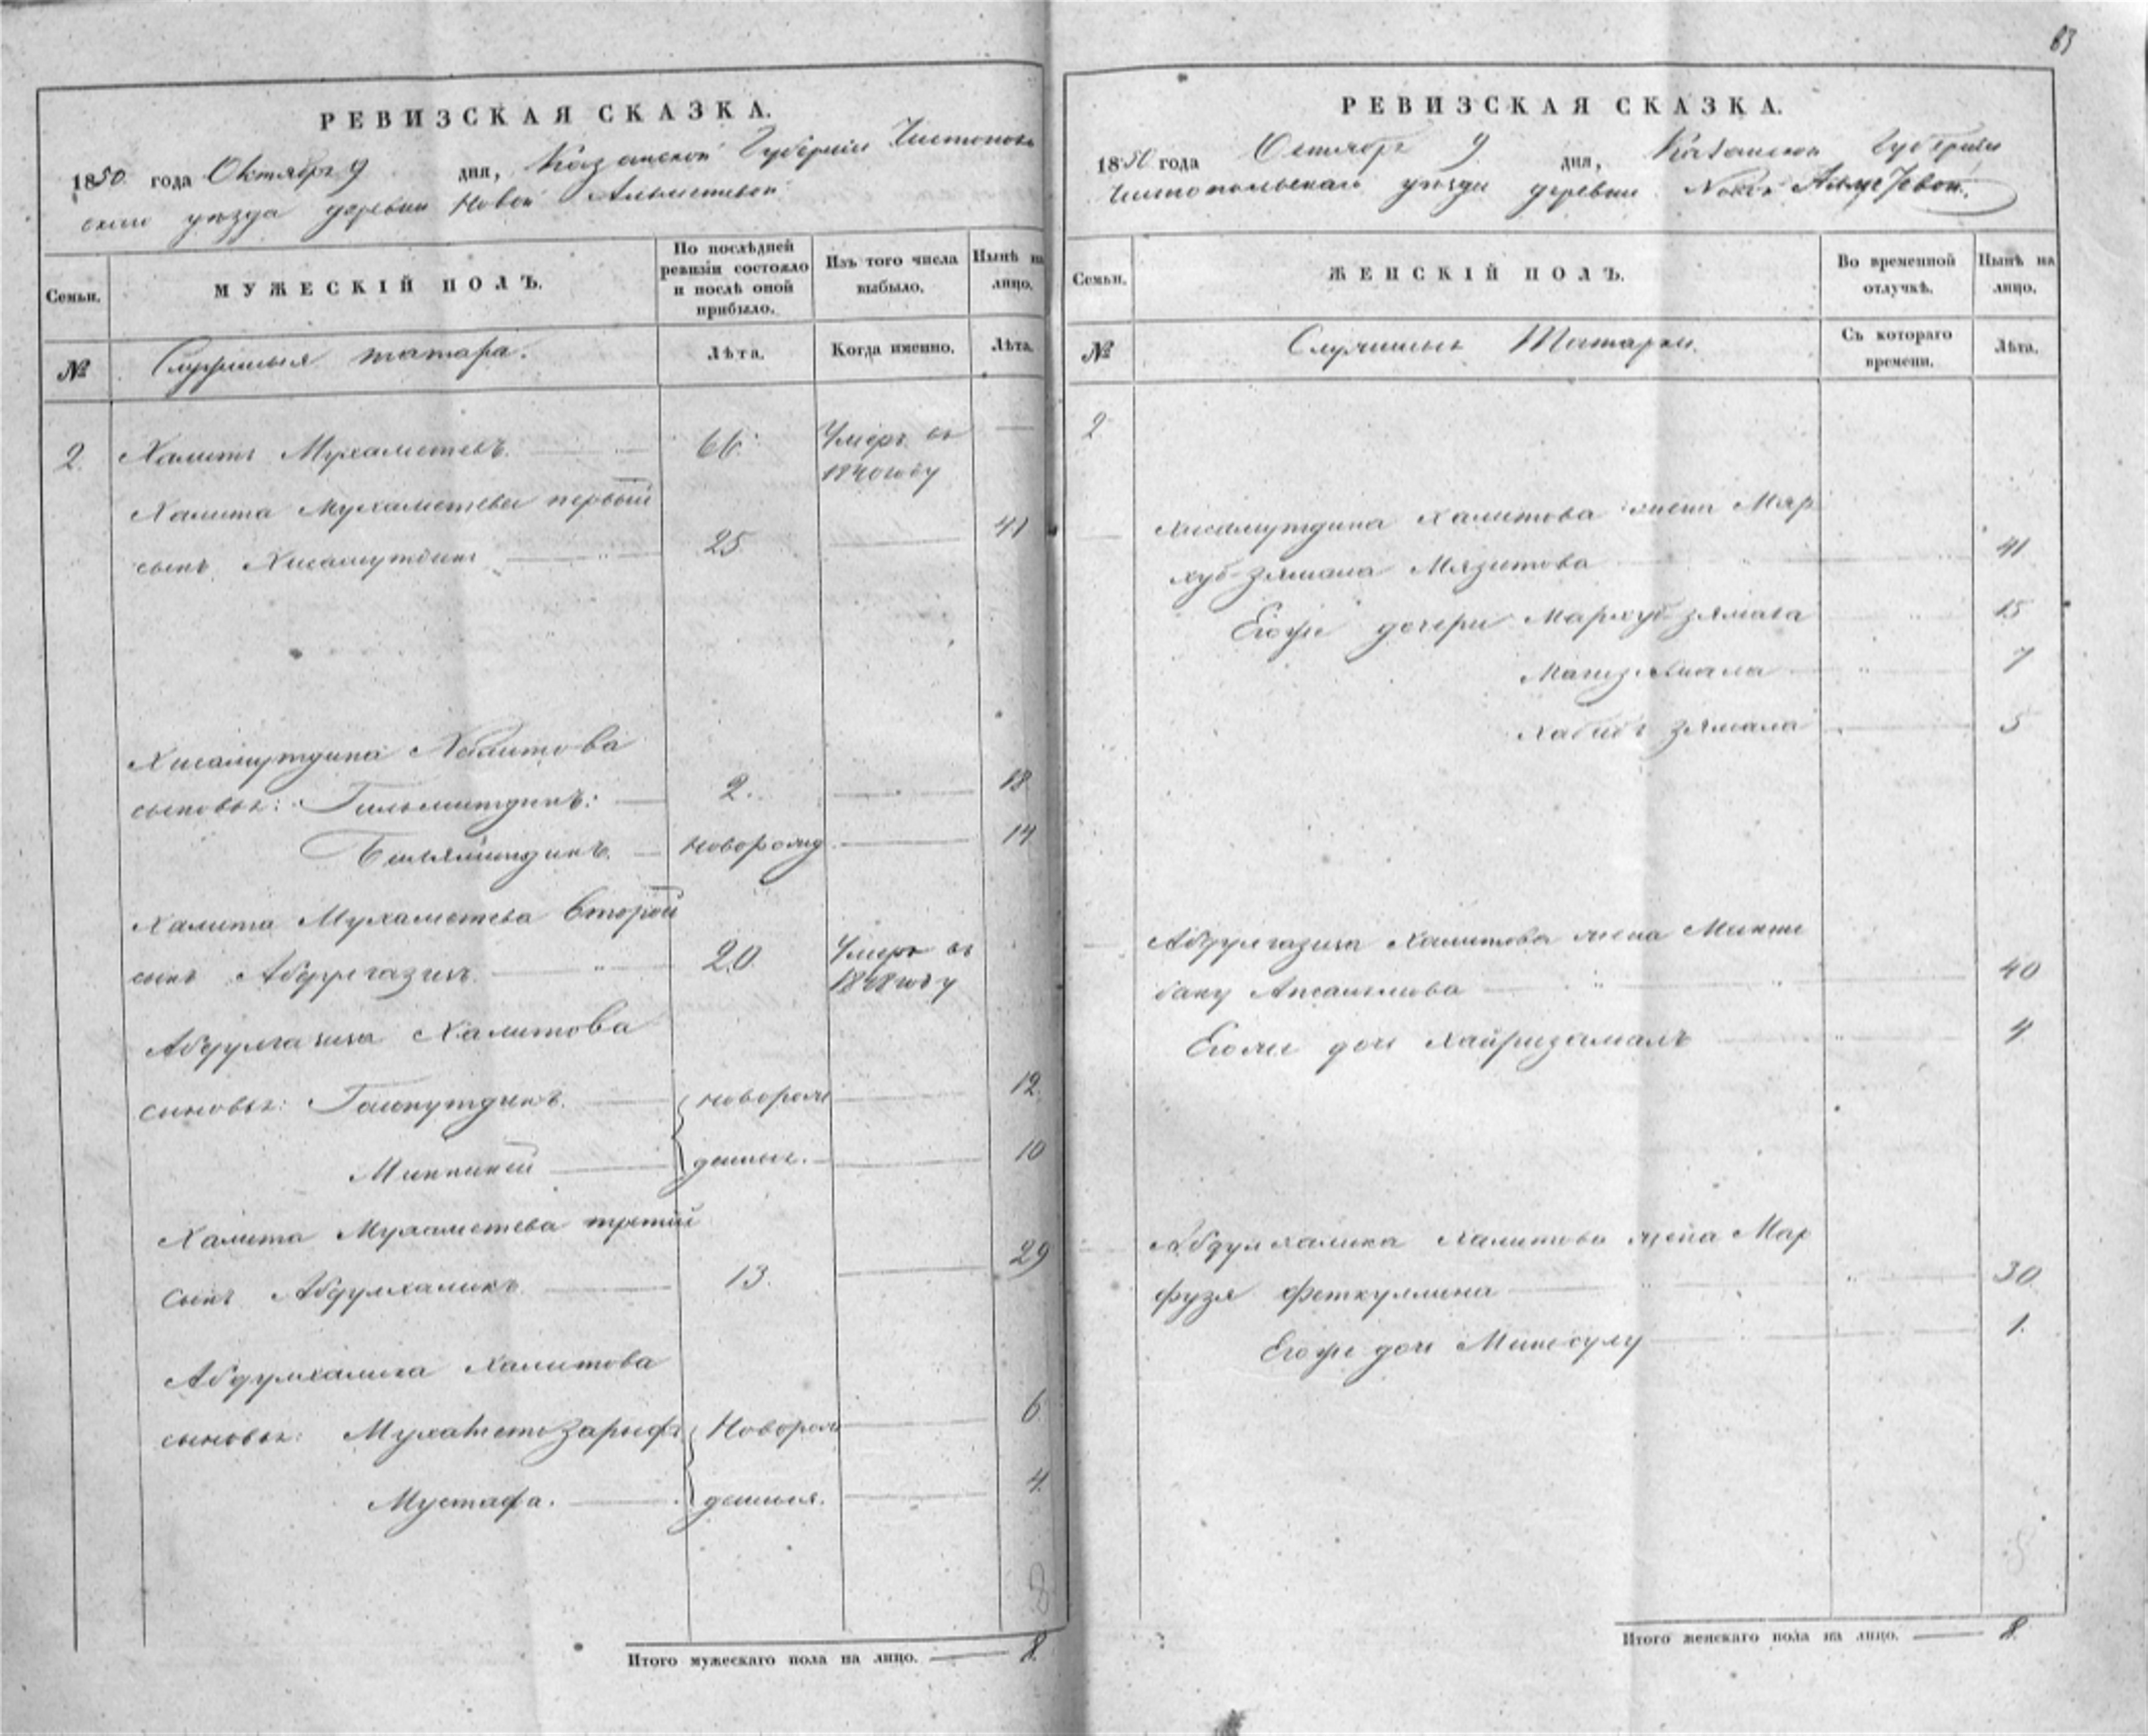 83
РЕВИЗСКАЯ СКАЗКА.
1850 года Октября 9 дня, Казанской Губернии Чистополь
скаго уезда деревни Новой Альметевой
Семьи.
МУЖЕСКІЙ ПОЛЪ.
По послѣдней ревизіи состояло и послѣ оной прибыло.
Изъ того числа выбыло.
Нынѣ на лицо.
№
Служилыя татара.
Лѣта.
Когда именно.
Лѣта.
2. Халитъ Мухаметевъ. 66. Умеръ въ
1840 году
Халита Мухаметева первый
сынъ Хисамутдинъ 25 41
Хисамутдина Халитова
сыновья: Гильмитдинъ: 2. 18
новорожд 14
Халита Мухаметева второй
сынъ Абдулгазизъ 20 Умеръ въ
1848 году
Абдулгазиза Халитова
сыновья: новорож 12.
Минникей денныя. 10
Халита Мухаметева третий
сынъ Абдулхаликъ 13. 29
Абдулхалика Халитова
сыновья: Мухаметзарифъ Новорож 6.
Мустафа. денныя. 4.
8
Итого мужескаго пола на лицо. 8.
РЕВИЗСКАЯ СКАЗКА.
1850 года Октября 9 дня, Казанской Губернии
Чистопольскаго уезда деревни Новой Альметевой.
Семьи.
ЖЕНСКІЙ ПОЛЪ.
Во временной отлучкѣ.
Нынѣ на лицо.
№
Служилыя Татарки.
Съ котораго времени.
Лѣта.
2
Хисамутдина Халитова жена Мяр
хуб-Зямала Мязитова 41
Егоже дочери Мархуб-зямала 15
7
Хабибъ зямала 5
Абдулгазиза Халитова жена Минни
бану 40
Егоже дочь Хайризамалъ 4
Абдулхалика Халитова жена Мар
фузя Феткуллина 30.
Егоже дочь Минсулу 1.
Итого женскаго пола на лицо. 8.